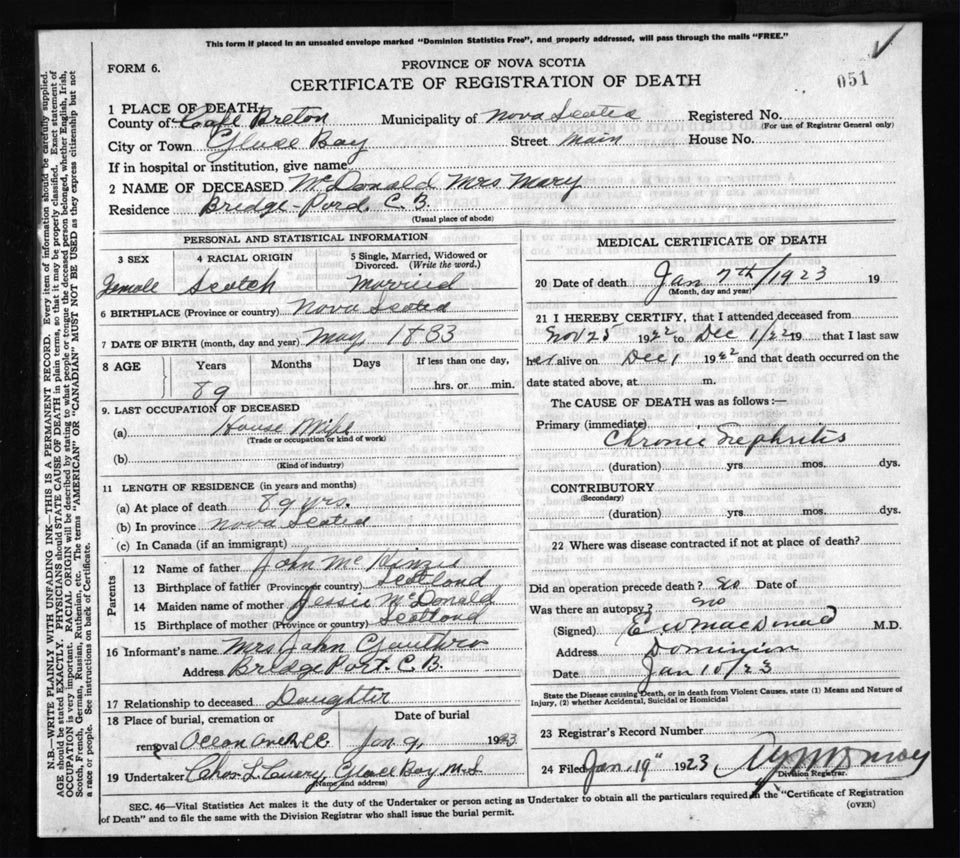 This form if placed in an unsealed envelope marked "Dominion Statistics Free", and properly addressed, will pass through the mails "FREE."
FORM 6.
PROVINCE OF NOVA SCOTIA
CERTIFICATE OF REGISTRATION OF DEATH
051
1 PLACE OF DEATH
County of Cape Breton Municipality of Nova Scotia Registered No.
(For use of Registrar General only)
City or Town Glace Bay Street Main House No.
If in hospital or institution, give name
2 NAME OF DECEASED McDonald Mrs Mary
Residence Bridge-Pord, C B.
(Usual place of abode)
PERSONAL AND STATISTICAL INFORMATION
3 SEX 4 RACIAL ORIGIN 5 Single, Married, Widowed or Divorced. (Write the word.)
Female Scotch Married
6 BIRTHPLACE (Province or country) Nova Scotia
7 DATE OF BIRTH (month, day and year) May, 1833
8 AGE Years Months Days If less than one day,
89 hrs. or min.
9. LAST OCCUPATION OF DECEASED
(a) House Wife
(Trade or occupation or kind of work)
(b)
(Kind of industry)
11 LENGTH OF RESIDENCE (in years and months)
(a) At place of death 89 yrs.
(b) In province Nova Scotia
(c) In Canada (if an immigrant)
Parents
12 Name of father John McKinzie
13 Birthplace of father (Province or country) Scotland
14 Maiden name of mother Jessie McDonald
15 Birthplace of mother (Province or country) Scotland
16 Informant's name Mrs John Gouthro
Address Bridge Port. C. B.
17 Relationship to deceased Daughter
18 Place of burial, cremation or Date of burial
removal Jan. 9, 1923
19 Undertaker Glace Bay N.S
(Name and address)
MEDICAL CERTIFICATE OF DEATH
20 Date of death Jan 7th/1923 19
(Month, day and year)
21 I HEREBY CERTIFY, that I attended deceased from
Nov 25 1922 to Dec 1/22 19 that I last saw
her alive on Dec 1 1922 and that death occurred on the
date stated above, at m.
The CAUSE OF DEATH was as follows :—
Primary (immediate)
Chronic Nephritis
(duration) yrs. mos. dys.
CONTRIBUTORY
(Secondary)
(duration) yrs. mos. dys.
22 Where was disease contracted if not at place of death?
Did an operation precede death? No Date of
Was there an autopsy? no
(Signed) E W MacDonald M.D.
Address Dominion
Date Jan 10/23
State the Disease causing Death, or in death from Violent Causes, state (1) Means and Nature of Injury, (2) whether Accidental, Suicidal or Homicidal
23 Registrar's Record Number
24 Filed Jan. 19" 1923
Division Registrar.
SEC. 46—Vital Statistics Act makes it the duty of the Undertaker or person acting as Undertaker to obtain all the particulars required in the "Certificate of Registration
of Death" and to file the same with the Division Registrar who shall issue the burial permit.
(OVER)
N.B.—WRITE PLAINLY WITH UNFADING INK—THIS IS A PERMANENT RECORD. Every item of information should be carefully supplied.
AGE should be stated EXACTLY. PHYSICIANS should STATE CAUSE OF DEATH in plain terms, so that it may be properly classified. Exact statement of
OCCUPATION is very important. RACIAL ORIGIN will be described by stating to what people or tongue the deceased person belonged, whether English, Irish,
Scotch, French, German, Russian, Ruthenian, etc. The terms "AMERICAN" OR "CANADIAN" MUST NOT BE USED as they express citizenship but not
a race or people. See instructions on back of Certificate.